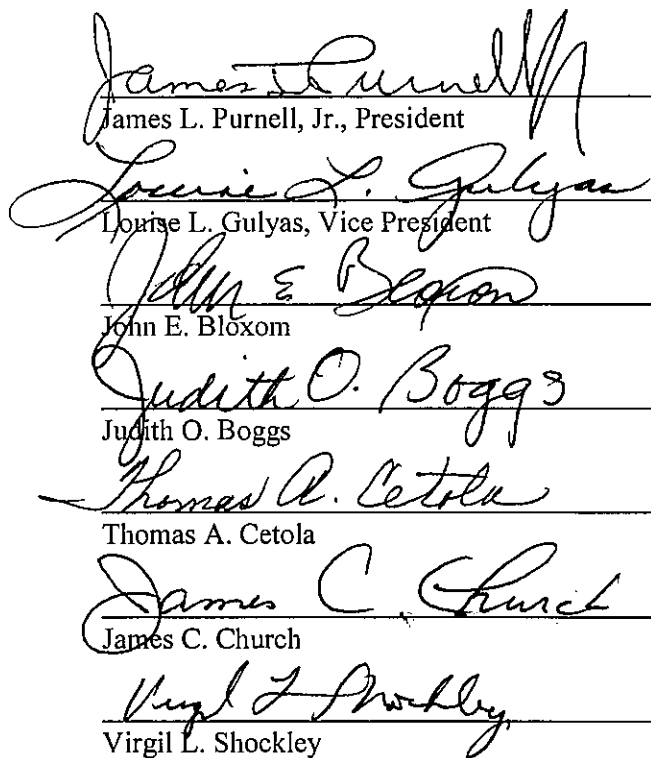 James L Purnell Jr
James L. Purnell, Jr., President
Louise L. Gulyas
Louise L. Gulyas, Vice President
John E Bloxom
John E. Bloxom
Judith O. Boggs
Judith O. Boggs
Thomas A. Cetola
Thomas A. Cetola
James C. Church
James C. Church
Virgil L Shockley
Virgil L. Shockley